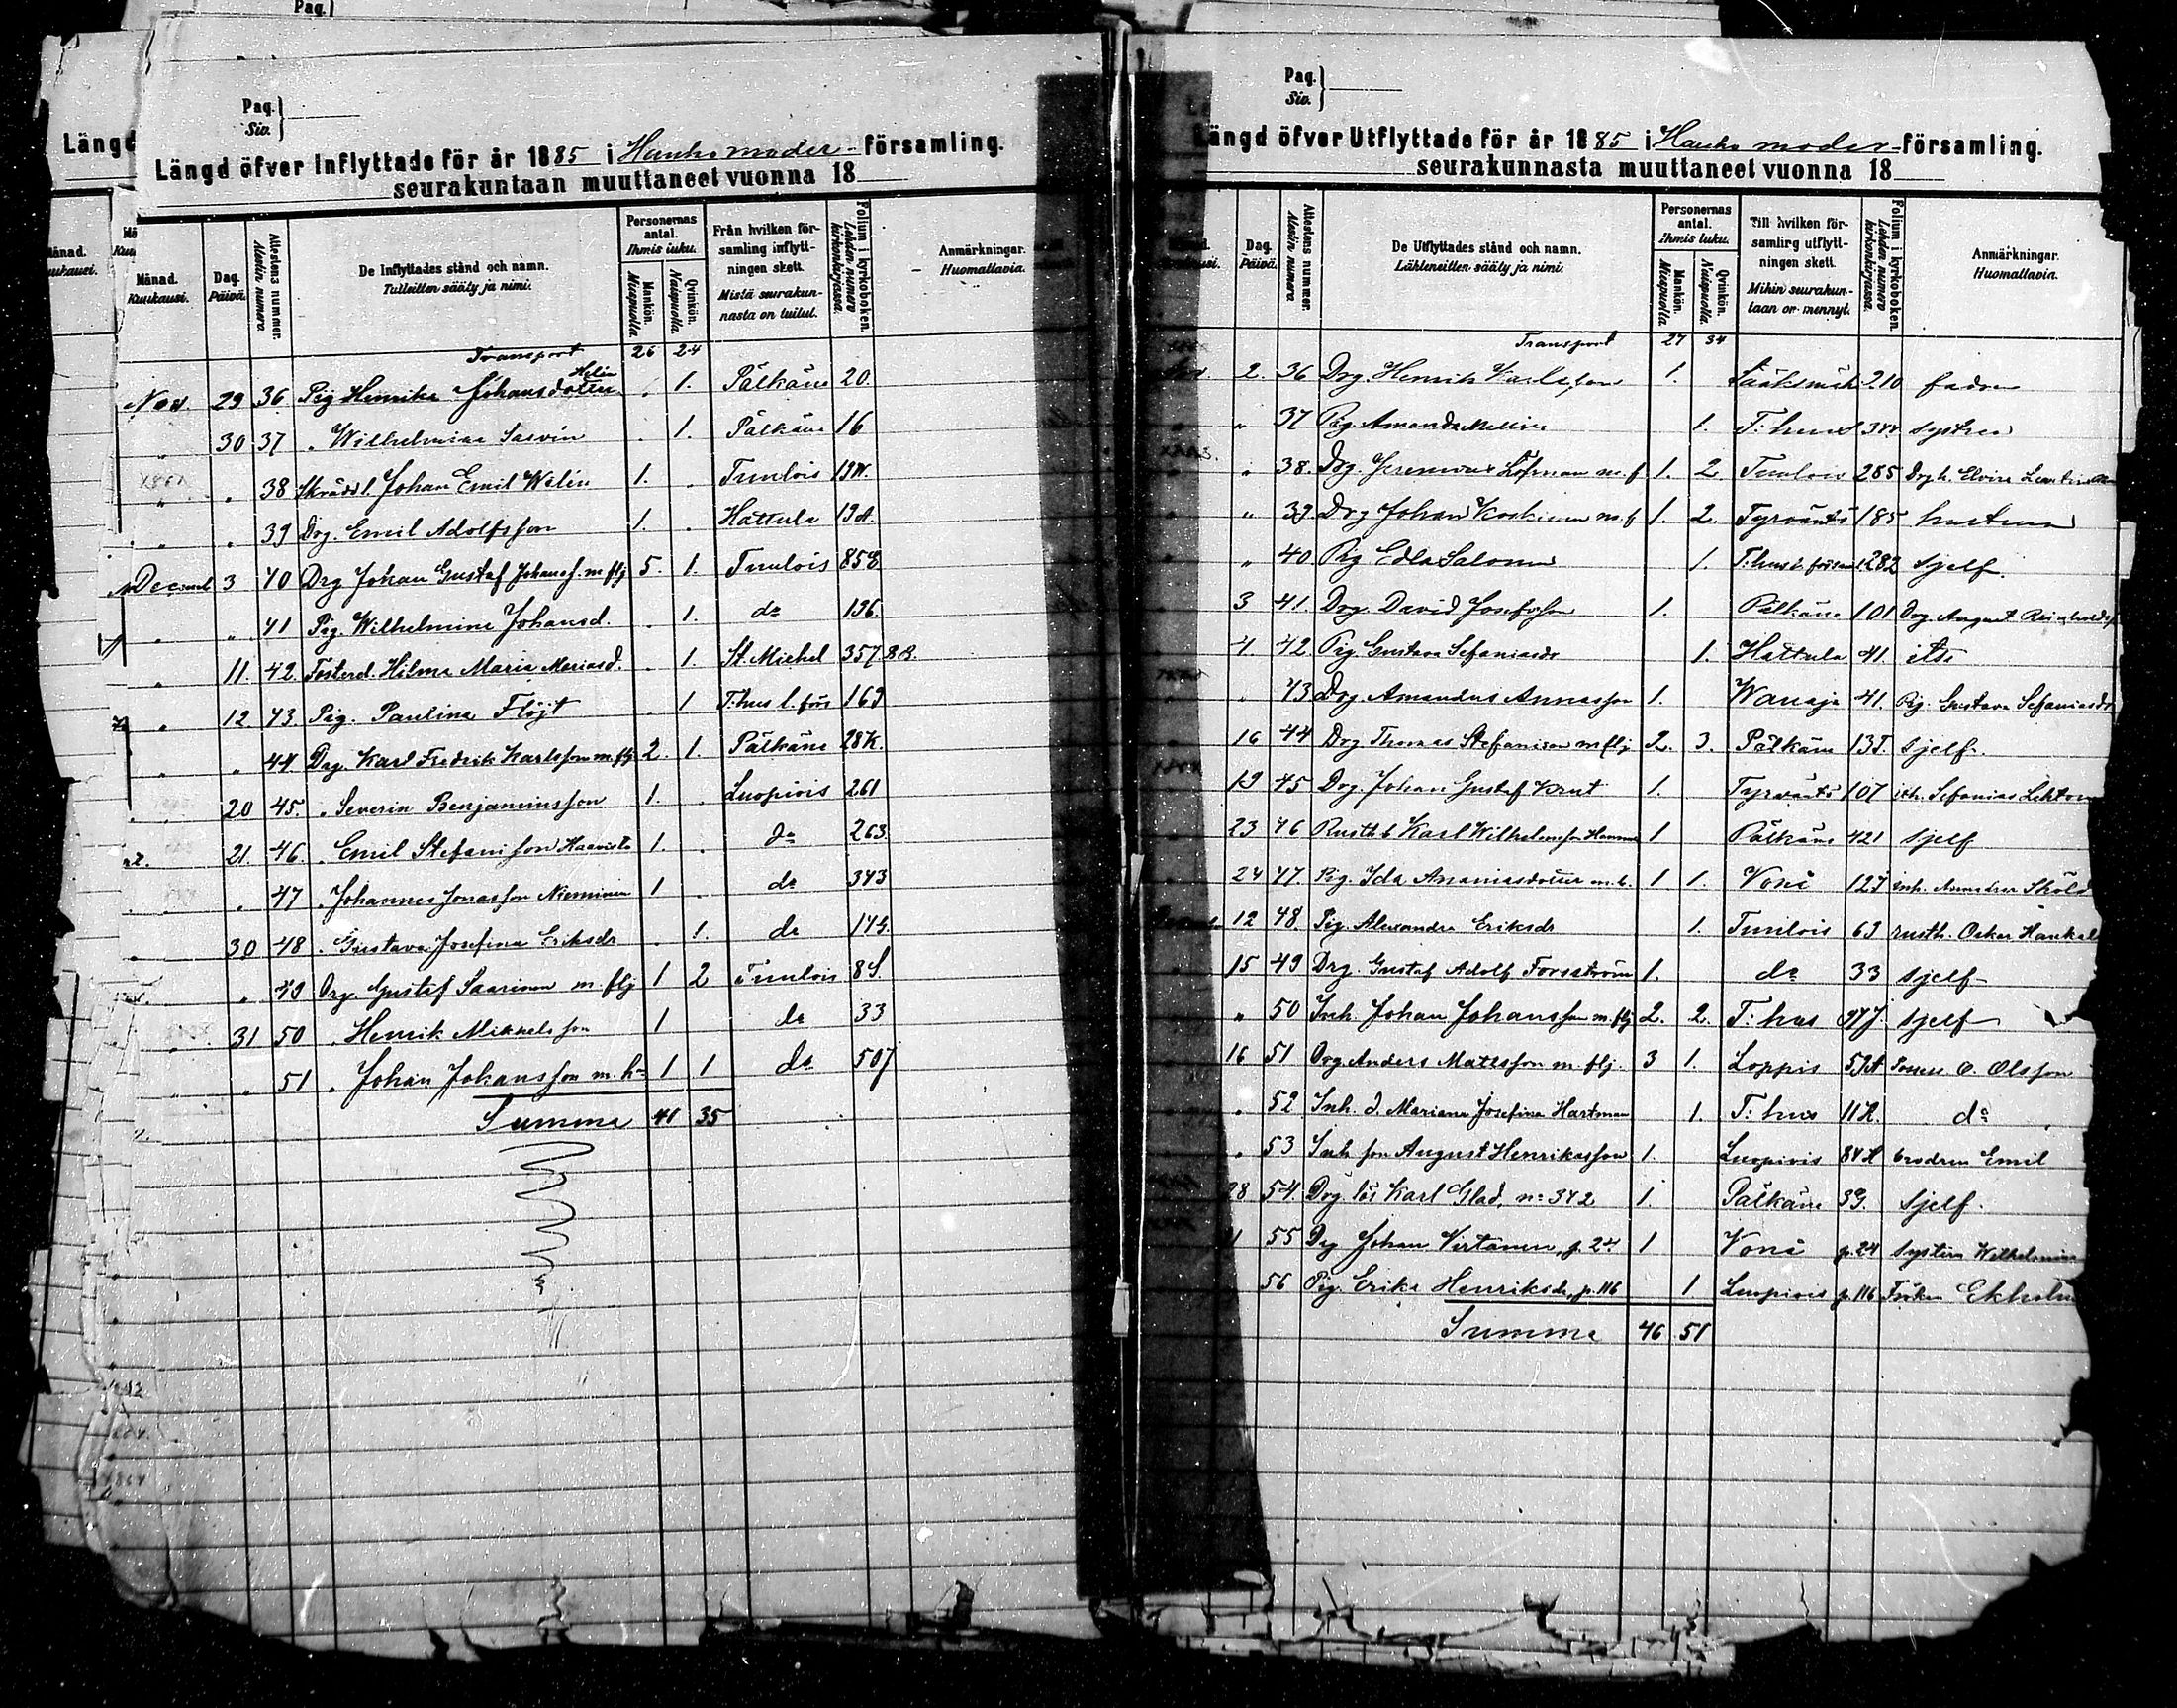 Pag.
Pag.
Siv.
Längd
Längd öfver Inflyttade för år 1885 i Hauho moder-församling.
seurakuntaan muuttaneet vuonna 18
Månad. Kuukausi. Dag. Päivä. Attestens nummer. Alestin numero De Inflyttades stånd och namn. Tulleitten sääty ja nimi. Personernas antal. Ihmis luku. Mankön. Miespuolia. Qvinkön. Naispuolia. Från hvilken församling inflyttningen skett. Mistä seurakunnasta on tullut. Folium i kyrkoboken. Lehden numero kirkonkirjassa. Anmärkningar. Huomattavia.
Transport 26 24
Nov. 29 36 Pig Henrika Johansdotter Helin . 1. Pälkäne 20.
" 30 37 . Wilhelmina Salvin . 1. Pälkäne 16
" " 38 Skrädd l. Johan Emil Welin 1. . Tuulois 19N.
" " 39 Drg. Emil Adolfsson 1. . Hattula 19A.
Decemb 3 40 Drg Johan Gustaf Johanss. m. flj 5. 1. Tuulois 85E
" " 41 Pig. Wilhelmina Johansd. . 1. do 196.
" 11. 42. Fosterd. Hilma Maria Mariasd. . 1. St. Michel 357 BB.
" 12 43. Pig. Paulina Flöjt 1 T:hus l. förs 169
" " 44 Drg. Karl Fredrik Karlsson m. flj 2. 1. Pälkäne 28K.
" 20 45. . Severin Benjaminsson 1. . Luopiois 261
21. 46. . Emil Stefansson Haavisto 1. . do 263.
" 47 . Johannes Jonasson Nieminen 1 . do 343
30 48 . Gustava Josefina Eriksdr . 1. do 14G.
" 49 Drg. Gustaf Saarinen m. flj 1 2 Tuulois 8S.
31 50 . Henrik Mikkelsson 1 do 33
" 51 . Johan Johansson m. h. 1 1 do 507
Summa 41 35
Pag.
Siv.
Längd öfver Utflyttade för år 1885 i Hauho moder-församling.
seurakunnasta muuttaneet vuonna 18
Dag. Päivä. Attestens nummer. Alestin numero De Utflyttades stånd och namn. Lähteneitten sääty ja nimi. Personernas antal. Ihmis luku. Mankön. Miespuolia Qvinkön. Naispuolia. Till hvilken församling utflyttningen skett. Mihin seurakuntaan on mennyt. Folium i kyrkoboken. Lehden numero kirkonkirjassa. Anmärkningar. Huomattavia.
Transport 27 34
Nov 2. 36 Drg. Henrik Karlsson 1. Sääksmäk 210 fadren
" 37 Pig. Amanda Mellin 1. T:hus 344 systren
" 38. Drg. Jeremias Löfman m. f 1. 2. Tuulois 285 Drg h. Elvira
" 39 Drg Johan Koskinen m. f 1. 2. Tyrväntö 185 hustrun
" 40 Pig Edla Salonen 1. T:hus l. förs 282 sjelf.
3 41. Drg. David Josefsson 1. Pälkäne 101 Drg. August
4 42 Pig. Gustava Sefaniasdr 1. Hattula 41. itse
" 43 Drg. Amandus Annasson 1. Wanaja 41. Pig. Gustava Sefaniasdr
16 44 Drg Thomas Stefansson m flj 2. 3. Pälkäne 13T. sjelf.
19 45 Drg. Johan Gustaf Knut 1. Tyrväntö 107 inh. Sefanias
23 46 Rusth. Karl Wilhelmsson 1 Pälkäne 421 sjelf
24 47. Pig. Ida Ananiasdotter m. b. 1 1. Vonå 127 inh. Sköld
12 48. Pig. Alexandra Eriksdr 1. Tuulois 63 rusth. Oskar
15 49 Drg. Gustaf Adolf Forsström 1. do 33 sjelf
" 50 Inh. Johan Johansson m. flj 2. 2. T:hus 97J. sjelf
16 51 Drg Anders Mattsson m. flj. 3 1. Loppis 59A O. Olsson
" 52 Inh. d. Mariana Josefina Hartman 1. T:hus 11H. do
" 53 Inh son August Henriksson 1. Luopiois 84H brodren Emil
28 54. Drg. lös Karl Glad, n:o 342 1. Pälkäne 39. sjelf.
55 Drg Johan Virtanen, p. 24. 1 Vonå p. 24 systern Wilhelmina
56 Pig. Erika Henriksdr, p. 116 1 Luopiois p. 116 Fröken Ekholm
Summa 46 51